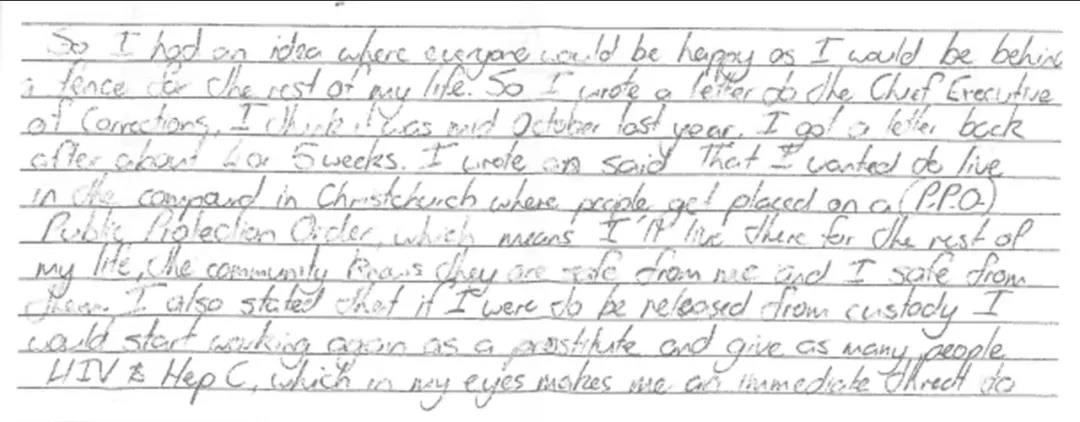 So I had an idea where everyone would be happy as I would be behind
a fence for the rest of my life. So I wrote a letter to the Chief Executive
of Corrections, I think it was mid October last year. I got a letter back
after about 4 or 5 weeks. I wrote an said that I wanted to live
in the compound in Christchurch where people get placed on a (P.P.O)
Public Protection Order, which means I'll live there for the rest of
my life, the community knows they are safe from me and I safe from
them. I also stated that if I were to be released from custody I
would start working again as a prostitute and give as many people
HIV & Hep C, which in my eyes makes me an immediate threat to